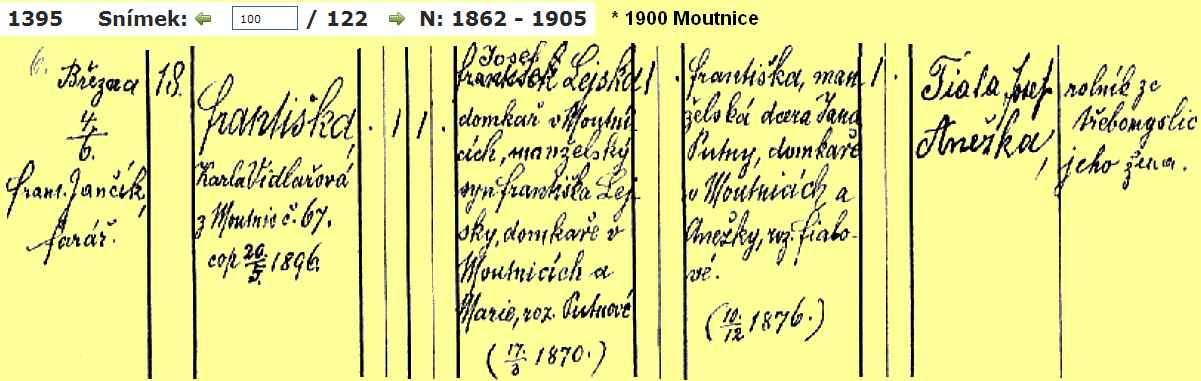 1395 Snímek: 100 / 122 N: 1862 - 1905 * 1900 Moutnice
6. Března
4./6.
Frant. Jančík,
farář.
18.
Františka,
Karla Vidlařová
z Moutnic č. 67.
cop 26/5. 1896.
1 1.
Josef
František Lejska
domkař v Moutni
cích, manželský
syn Františka Lej
sky, domkaře v
Moutnicích a
Marie, roz. Putnové
(17./3 1870.)
1.
Františka, man
želská dcera Jana
Putny, domkaře
v Moutnicích a
Anežky, roz. Fialo-
vé.
(10./12 1876.)
1.
Fiala Josef
Anežka,
rolník ze
jeho žena.